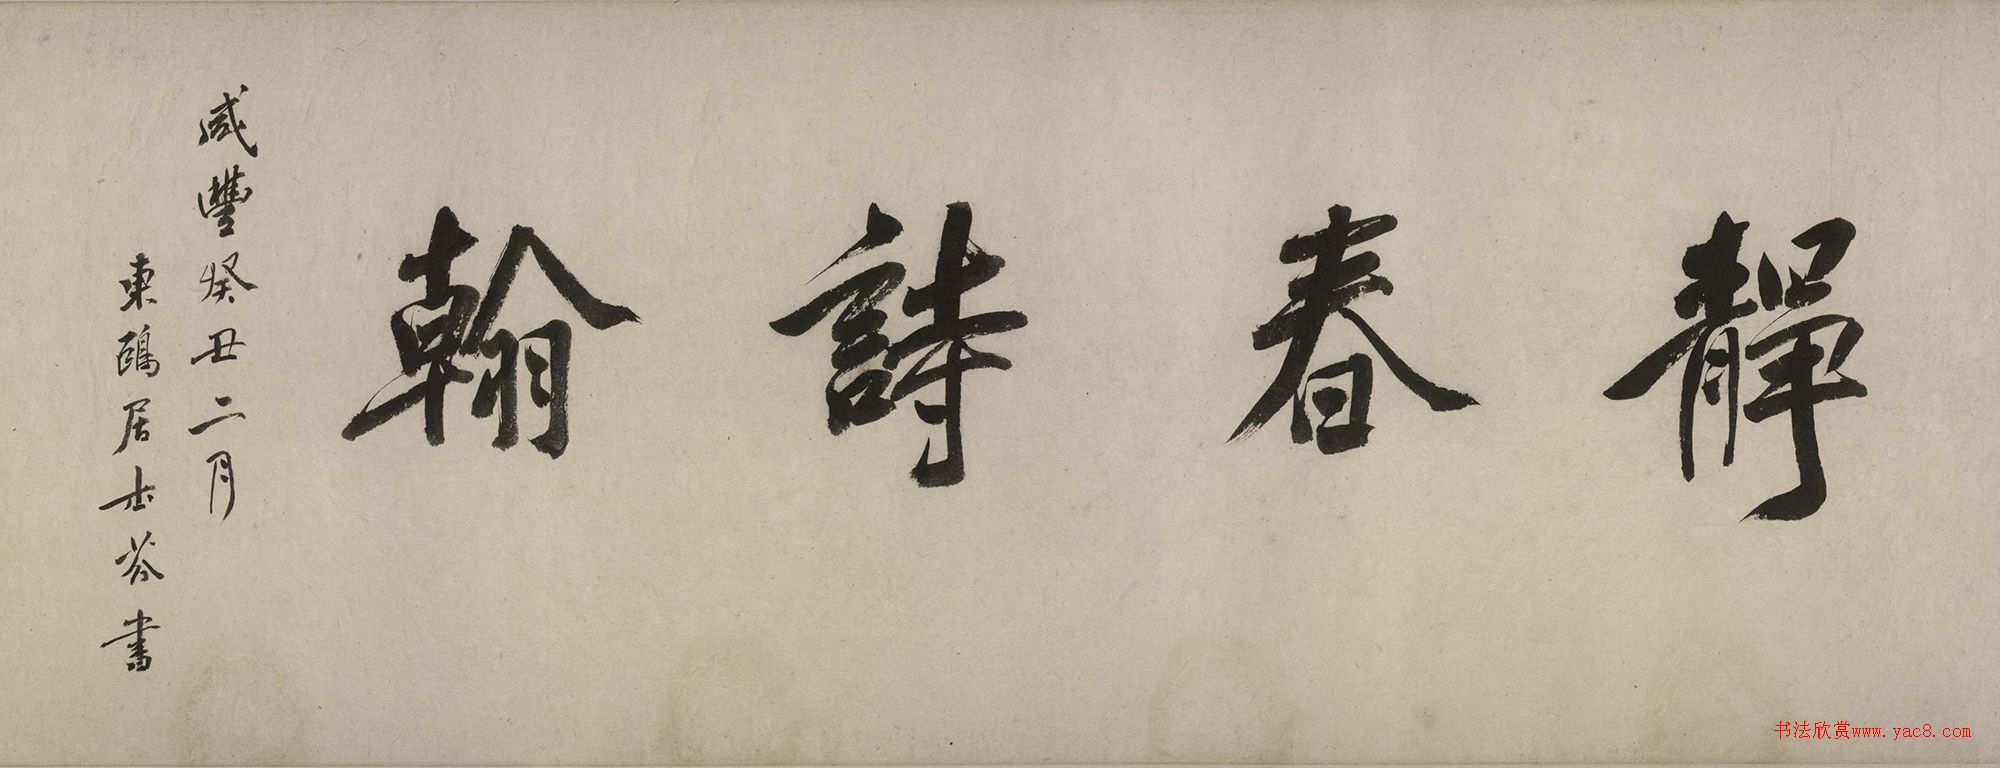 靜春詩翰
咸豐癸丑二月
東鷗居士芬書
书法欣赏www.yac8.com